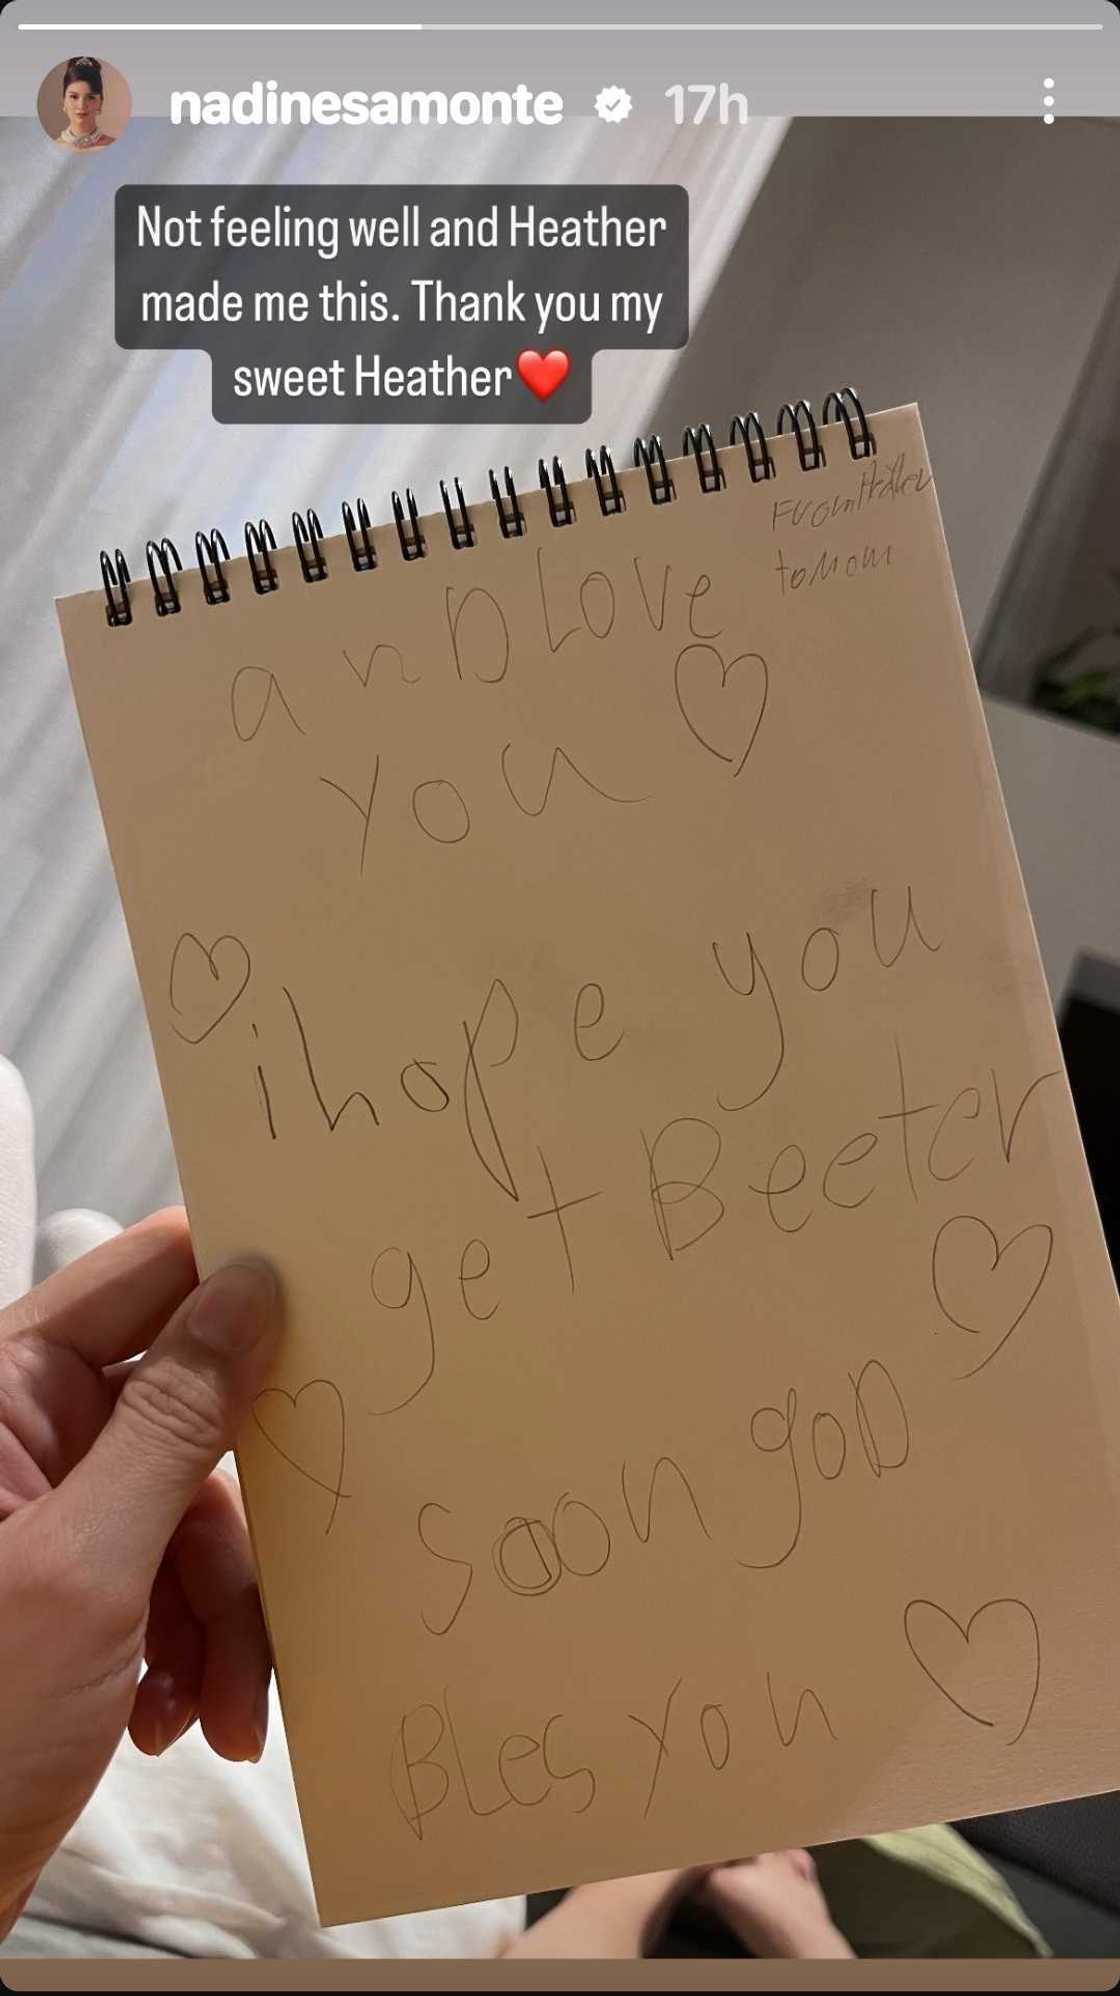 nadinesamonte 17h
Not feeling well and Heather
made me this. Thank you my
sweet Heather❤️
From Heather
to Mom
anD Love
you
i hope you
get Beeter
soon goD
Bles you